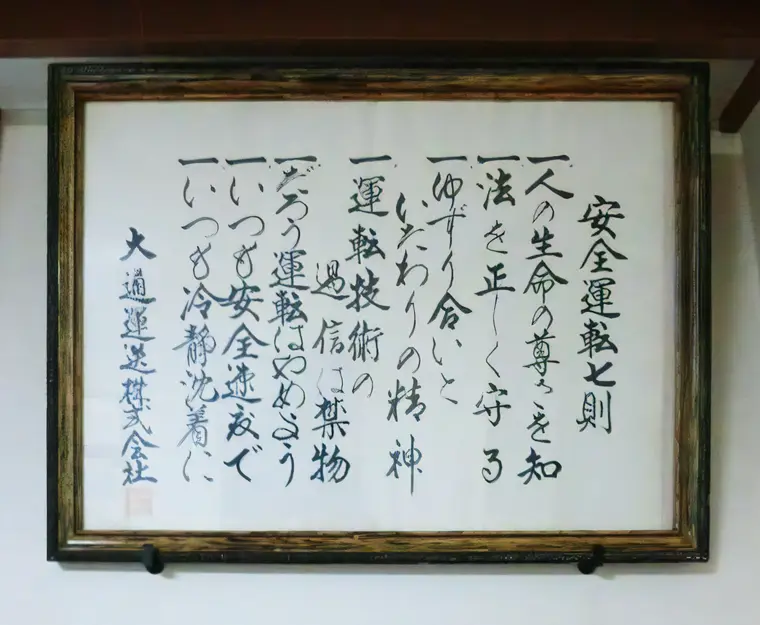 安全運転七則
一人の生命の尊さを知
一法を正しく守る
一ゆずり合いと
いたわりの精神
一運転技術の
過信は禁物
一だろう運転はやめよう
一いつも安全速度で
一いつも冷静沈着に
大通運送株式会社